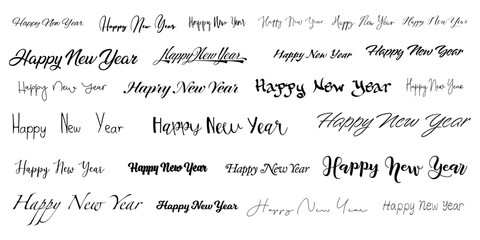 Happy New Year Happy New Year Happy New Year Happy New Year Happy New Year Happy New Year
Happy New Year Happy New Year Happy New Year Happy New Year
Happy New Year Happy New Year Happy New Year Happy New Year
Happy New Year Happy New Year Happy New Year
Happy New Year Happy New Year Happy New Year Happy New Year
Happy New Year Happy New Year Happy New Year Happy New Year